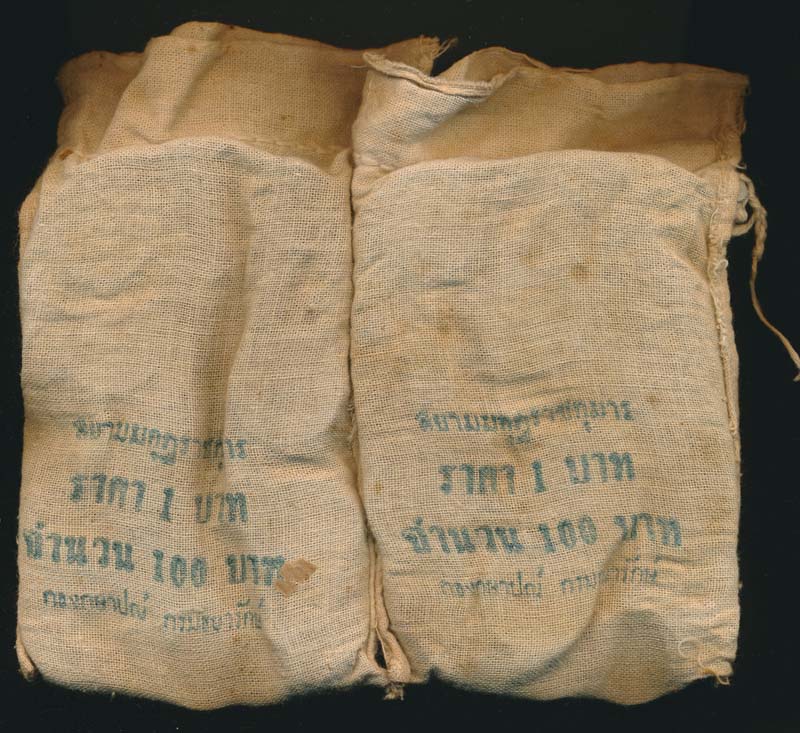 สยามมกุฎราชกุมาร
ราคา 1 บาท
จำนวน 100 บาท
กองกษาปณ์ กรมธนารักษ์
สยามมกุฎราชกุมาร
ราคา 1 บาท
จำนวน 100 บาท
กองกษาปณ์ กรมธนารักษ์